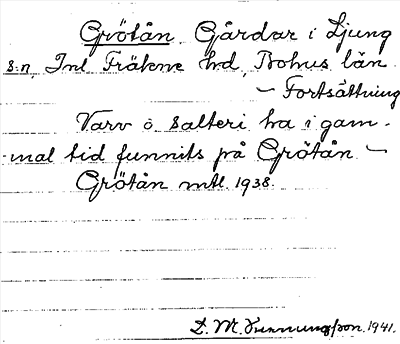 Grötån Gårdar i Ljung
s:n, Inl Fräkne hd, Bohus län
– Fortsättning
Varv o salteri ha i gam-
mal tid funnits på Grötån –
Grötån mtl. 1938.
D. M. 1941.